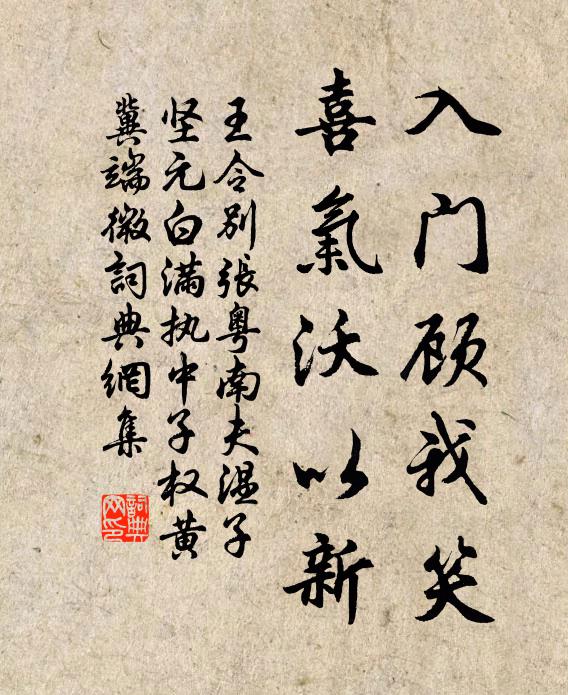 入门顾我笑
喜氣沃以新
王令别張粤南夫温子
坚元白满执中子权黄
冀端微詞典網集
詞典网印